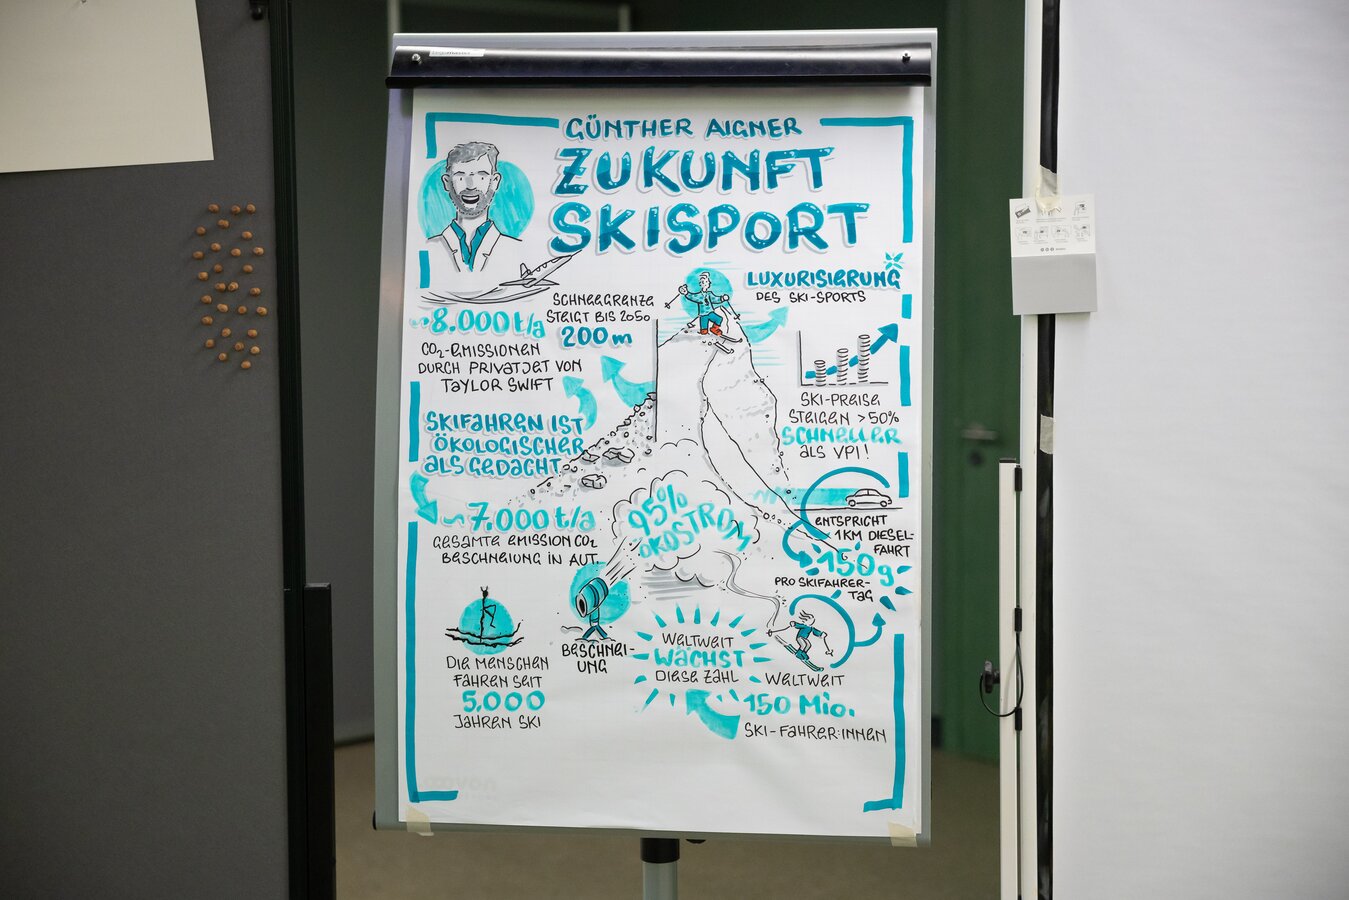 GÜNTHER AIGNER
ZUKUNFT
SKISPORT
LUXURISIERUNG
DES SKI-SPORTS
SCHNEEGRENZE
STEIGT BIS 2050
200m
~8.000t/a
CO₂-EMISSIONEN
DURCH PRIVATJET VON
TAYLOR SWIFT
SKI-PREISE
STEIGEN >50%
SCHNELLER
ALS VPI!
SKIFAHREN IST
ÖKOLOGISCHER
ALS GEDACHT
~7.000t/a
GESAMTE EMISSION CO₂
BESCHNEIUNG IN AUT.
95%
ÖKOSTROM
ENTSPRICHT
1KM DIESEL-
FAHRT
150g
PRO SKIFAHRER-
TAG
BESCHNEI-
UNG
DIE MENSCHEN
FAHREN SEIT
5.000
JAHREN SKI
WELTWEIT
WÄCHST
DIESE ZAHL
WELTWEIT
150 Mio.
SKI-FAHRER:INNEN